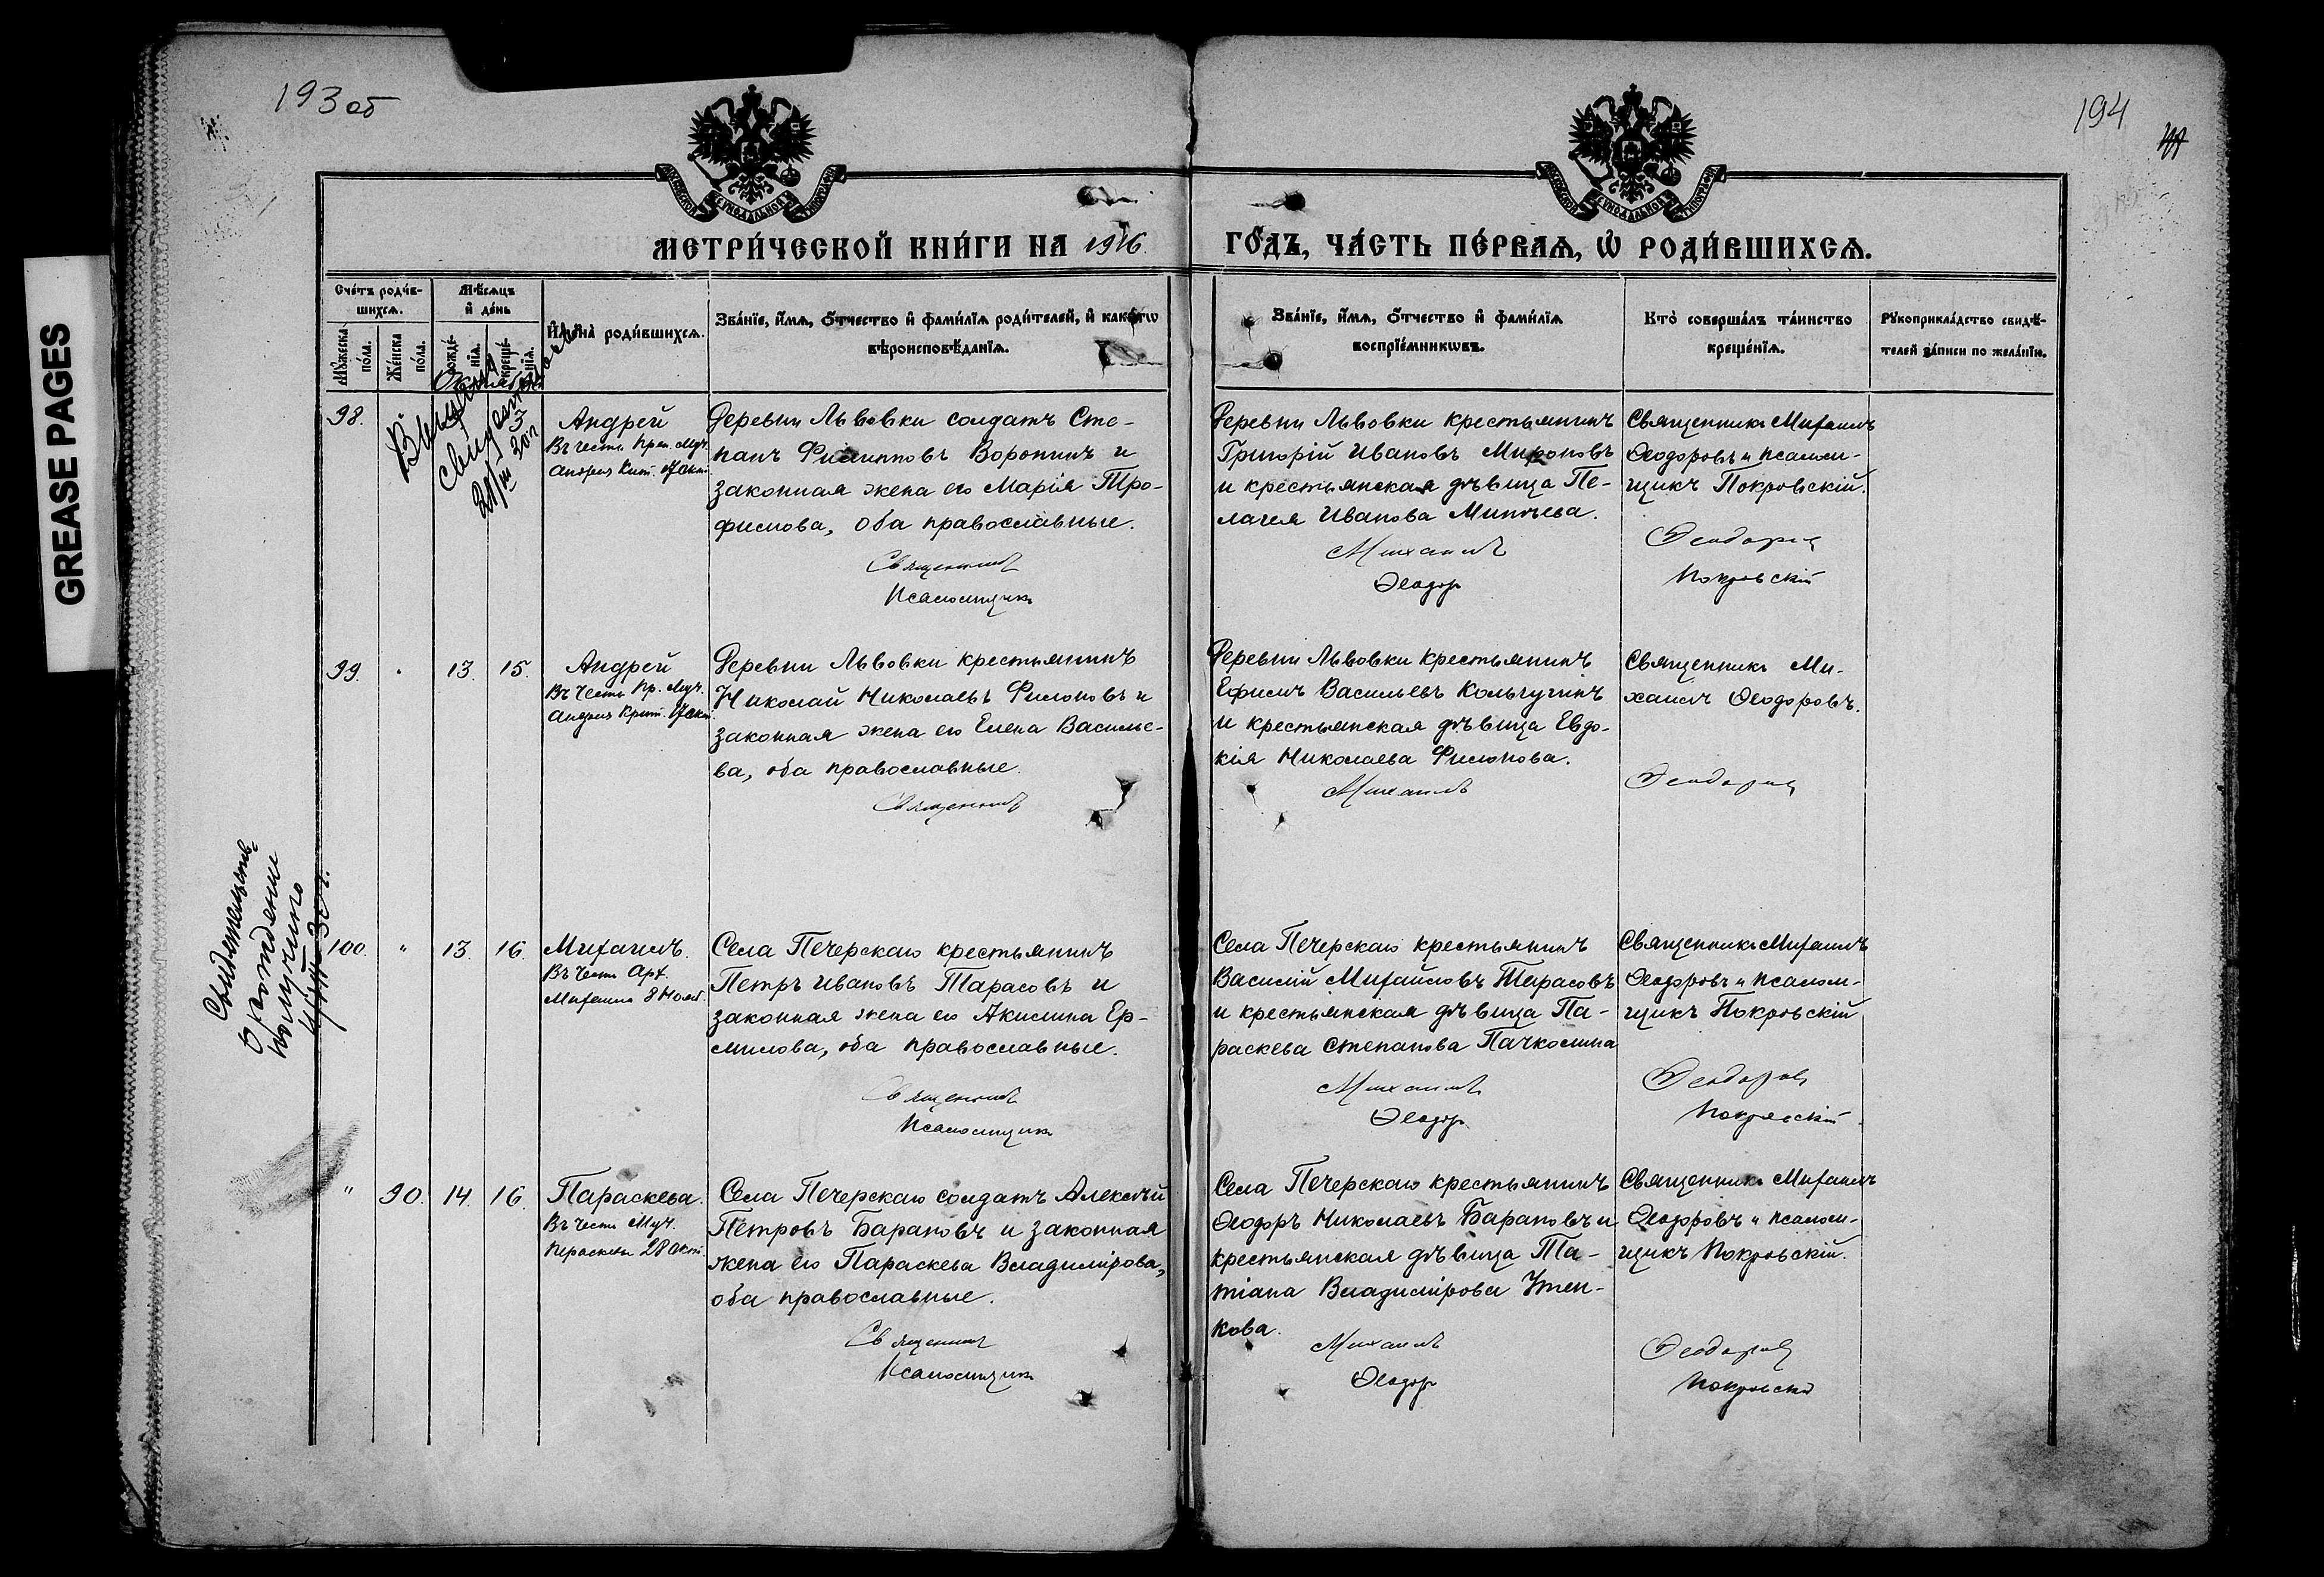 193 об
194
GREASE PAGES
МЕТРИ́ЧЕСКОЙ КНИ́ГИ НА 1916.
ГО́ДЪ, ЧА́СТЬ ПЕ́РВАѦ, Ѡ РОДИ́ВШИХСѦ.
Сче́тъ роди́в-
шихсѧ.
Мѣ́сѧцъ
и҆ де́нь
Мꙋ́жеска по́ла.
Же́нска по́ла.
рожде́-
нїѧ.
креще́-
нїѧ.
И҆мена̀ роди́вшихсѧ.
Зва́нїе, и҆́мѧ, ѻ҆́тчество и҆ фами́лїѧ роди́телей, и҆ како́гѡ
вѣроисповѣ́данїѧ.
Зва́нїе, и҆́мѧ, ѻ҆́тчество и҆ фами́лїѧ
воспрїе́мникѡвъ.
Кто̀ соверша́лъ та́инство
креще́нїѧ.
Рꙋкоприкла́дство свидѣ́-
телей за́писи по жела́нїю.
98.
Андрей
Въ честь преп. Муч.
Андрея Крит. 17 окт.
Деревни Львовки солдатъ Сте-
панъ Филипповъ Воронинъ и
законная жена его Марія Тро-
фимова, оба православные.
Священникъ
Псаломщикъ
Деревни Львовки крестьянинъ
Григорій Ивановъ Мироновъ
и крестьянская дѣвица Пе-
лагея Иванова
Михаилъ
Ѳеодор
Священникъ Михаилъ
Ѳеодоровъ и псалом-
щикъ Покровскій.
Ѳеодоровъ
Покровскій
99.
13.
15.
Андрей
Въ честь пр. Муч.
Андрея Крит. 17 окт.
Деревни Львовки крестьянинъ
Николай Николаевъ Филоновъ и
законная жена его Елена Василье-
ва, оба православные.
Священникъ
Деревни Львовки крестьянинъ
Ефимъ Васильевъ Кольчугинъ
и крестьянская дѣвица Евдо-
кія Николаева Филонова.
Михаилъ
Священникъ Ми-
хаилъ Ѳеодоровъ.
Ѳеодоровъ
Свидетельств.
о рождении
получено
100.
"
13.
16.
Михаилъ.
Въ честь Арх.
Михаила 8 Нояб.
Села Печерскаго крестьянинъ
Петръ Ивановъ Тарасовъ и
законная жена его Акилина Ер-
милова, оба православные.
Священникъ
Псаломщикъ
Села Печерскаго крестьянинъ
Василій Михайловъ Тарасовъ
и крестьянская дѣвица Па-
раскева Степанова Пачколина
Михаилъ
Ѳеодор
Священникъ Михаилъ
Ѳеодоровъ и псалом-
щикъ Покровскій
Ѳеодоровъ
Покровскій
"
90.
14.
16.
Параскева.
Въ честь Муч.
Параскевы 28 окт.
Села Печерскаго солдатъ Алексѣй
Петровъ Барановъ и законная
жена его Параскева Владимірова,
оба православные.
Священникъ
Псаломщикъ
Села Печерскаго крестьянинъ
Ѳеодоръ Николаевъ Барановъ и
крестьянская дѣвица Та-
тіана Владимірова Утен-
кова.
Михаилъ
Ѳеодор
Священникъ Михаилъ
Ѳеодоровъ и псалом-
щикъ Покровскій.
Ѳеодоровъ
Покровскій